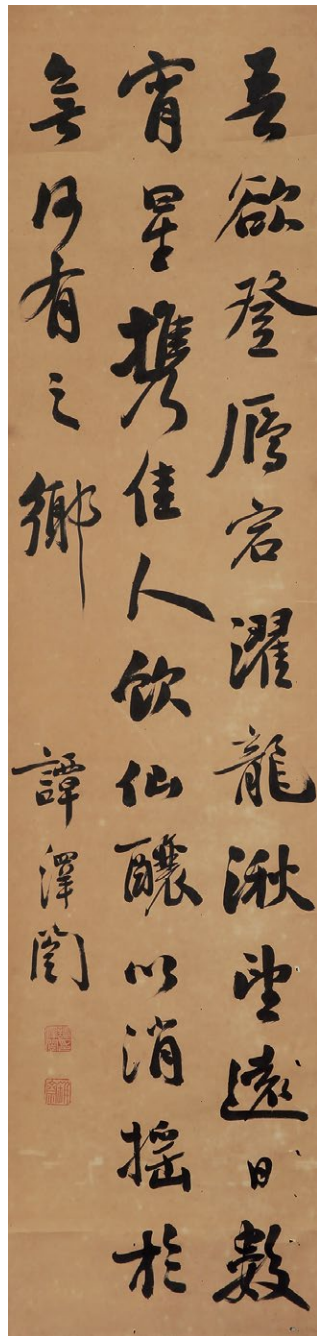 吾欲登鴈宕濯龍湫望遠日數
宵星携佳人飲仙釀以消搖於
無何有之鄉
譚澤闓